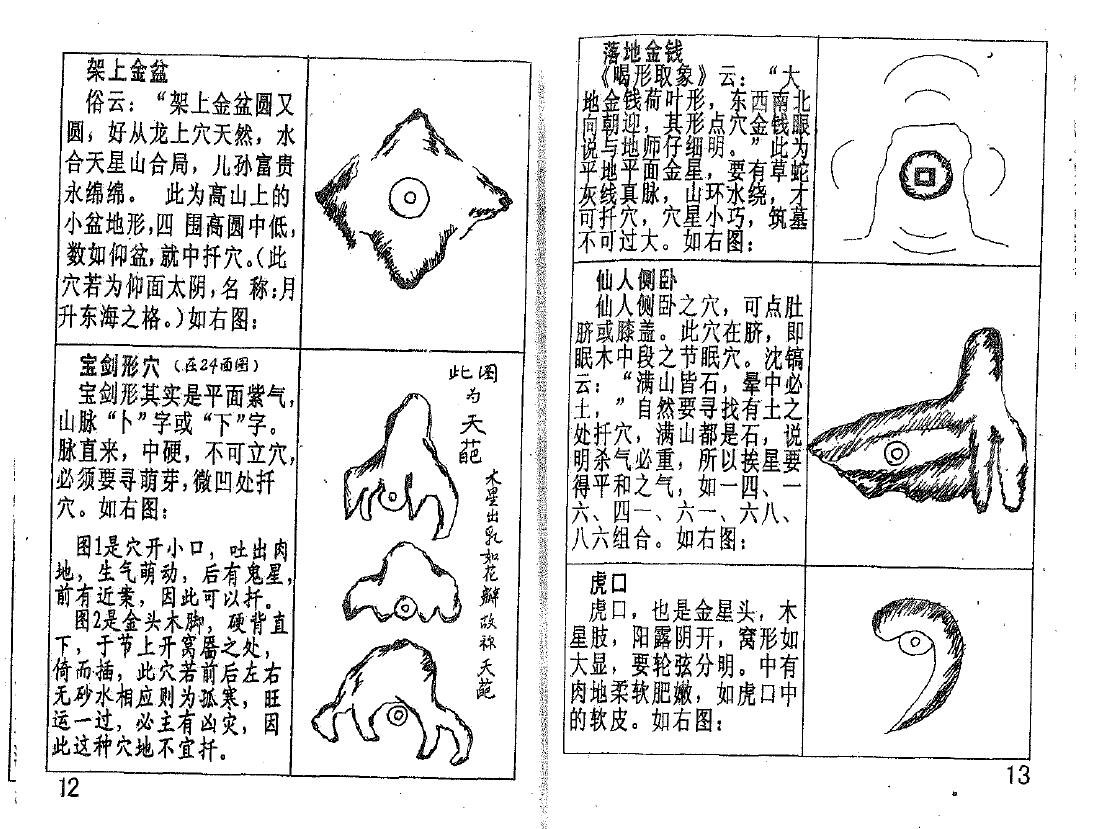 架上金盆
俗云：“架上金盆圆又
圆，好从龙上穴天然，水
合天星山合局，儿孙富贵
永绵绵。 此为高山上的
小盆地形，四 围高圆中低，
数如仰盆，就中扦穴。（此
穴若为仰面太阴，名 称：月
升东海之格。）如右图：
宝剑形穴（在24面图）
宝剑形其实是平面紫气，
山脉“卜”字或“下”字。
脉直来，中硬，不可立穴，
必须要寻萌芽，微凹处扦
穴。如右图：
图1是穴开小口，吐出肉
地，生气萌动，后有鬼星，
前有近案，因此可以扦。
图2是金头木脚，硬背直
下，于节上开窝靥之处，
倚而插，此穴若前后左右
无砂水相应则为孤寒，旺
运一过，必主有凶灾，因
此这种穴地不宜扦。
此图
为
天葩
木星出乳如花瓣故称天葩
12
落地金钱
《喝形取象》云：“大
地金钱荷叶形，东西南北
向朝迎，其形点穴金钱眼
说与地师仔细明。”此为
平地平面金星，要有草蛇
灰线真脉，山环水绕，才
可扦穴，穴星小巧，筑墓
不可过大。如右图：
仙人侧卧
仙人侧卧之穴，可点肚
脐或膝盖。此穴在脐，即
眠木中段之节眠穴。沈镐
云：“满山皆石，晕中必
土，”自然要寻找有土之
处扦穴，满山都是石，说
明杀气必重，所以挨星要
得平和之气，如一四、一
六、四一、六一、六八、
八六组合。如右图：
虎口
虎口，也是金星头，木
星肢，阳露阴开，窝形如
大显，要轮弦分明。中有
肉地柔软肥嫩，如虎口中
的软皮。如右图：
13